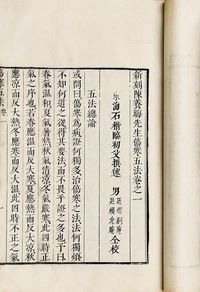 新刻陳養晦先生傷寒五法卷之一
石楷臨初父撰述 男 仝校
五法總論
或問曰傷寒為病証何獨多治傷寒之法何獨煩
不知何道之從得其要法而不畏乎証之多也予曰
春氣溫和夏氣暑熱秋氣清涼冬氣嚴寒此四時正
氣之序也若春應溫而反大寒夏應熱而反大涼秋
應涼而反大熱冬應寒而反大溫此四時不正之氣
寒五法 卷一